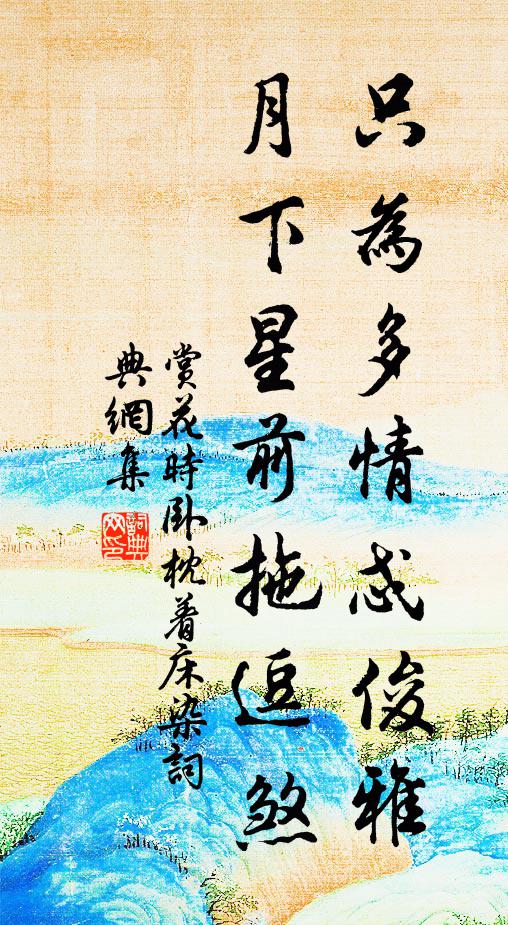 只為多情忒俊雅
月下星前拖逗煞
賞花時卧枕着床染詞
典網集
詞典網印